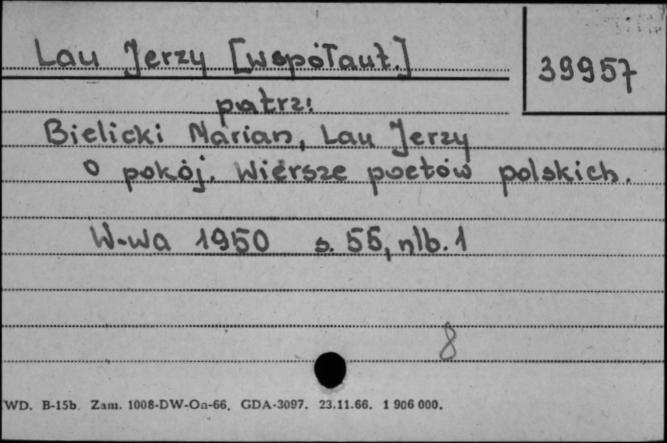 Lau Jerzy [współaut.]
39957
patrz:
Bielicki Marian, Lau Jerzy
O pokój. Wiersze poetów polskich.
W-wa 1950 s. 55, nlb. 1
8
WD. B-15b. Zam. 1008-DW-On-66. GDA-3097. 23.11.66. 1 906 000.